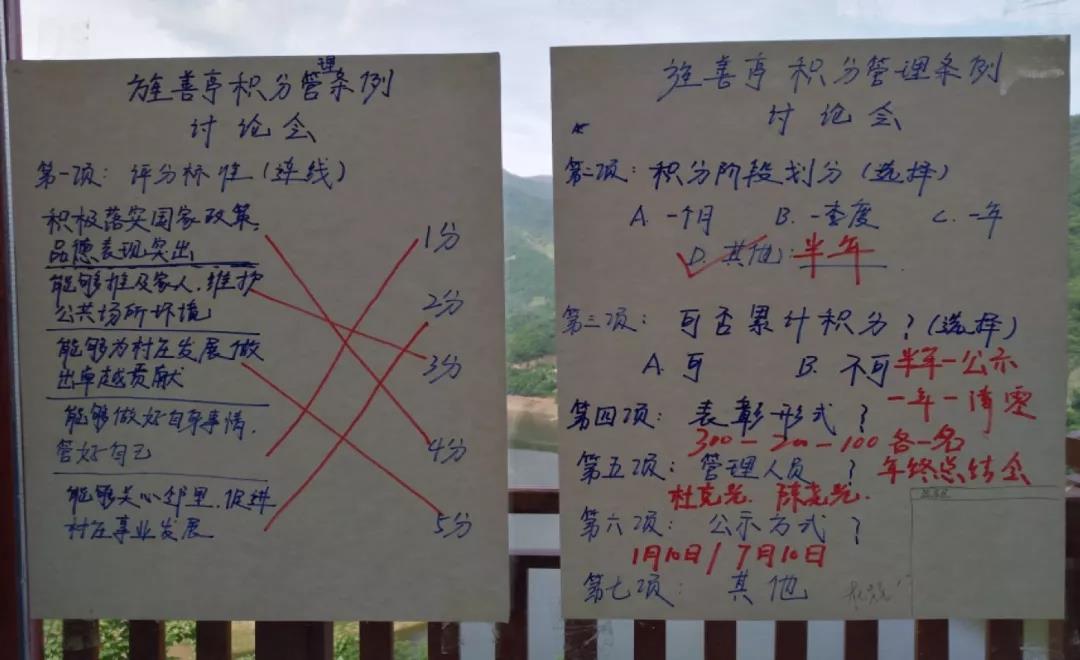 旌善亭积分管理条例
讨论会
第一项：评分标准（连线）
积极落实国家政策，
品德表现突出
能够推及家人，维护
公共场所环境
能够为村庄发展做
出卓越贡献
能够做好自身事情，
管好自己
能够关心邻里，促进
村庄事业发展
1分
2分
3分
4分
5分
旌善亭积分管理条例
讨论会
第二项：积分阶段划分（选择）
A. 一个月 B. 一季度 C. 一年
D. 其他：半年
第三项：可否累计积分？（选择）
A. 可 B. 不可 半年一公示
一年一清零
第四项：表彰形式？
300—200—100 各一名
第五项：管理人员？ 年终总结会
第六项：公示方式？
1月10日/7月10日
第七项：其他